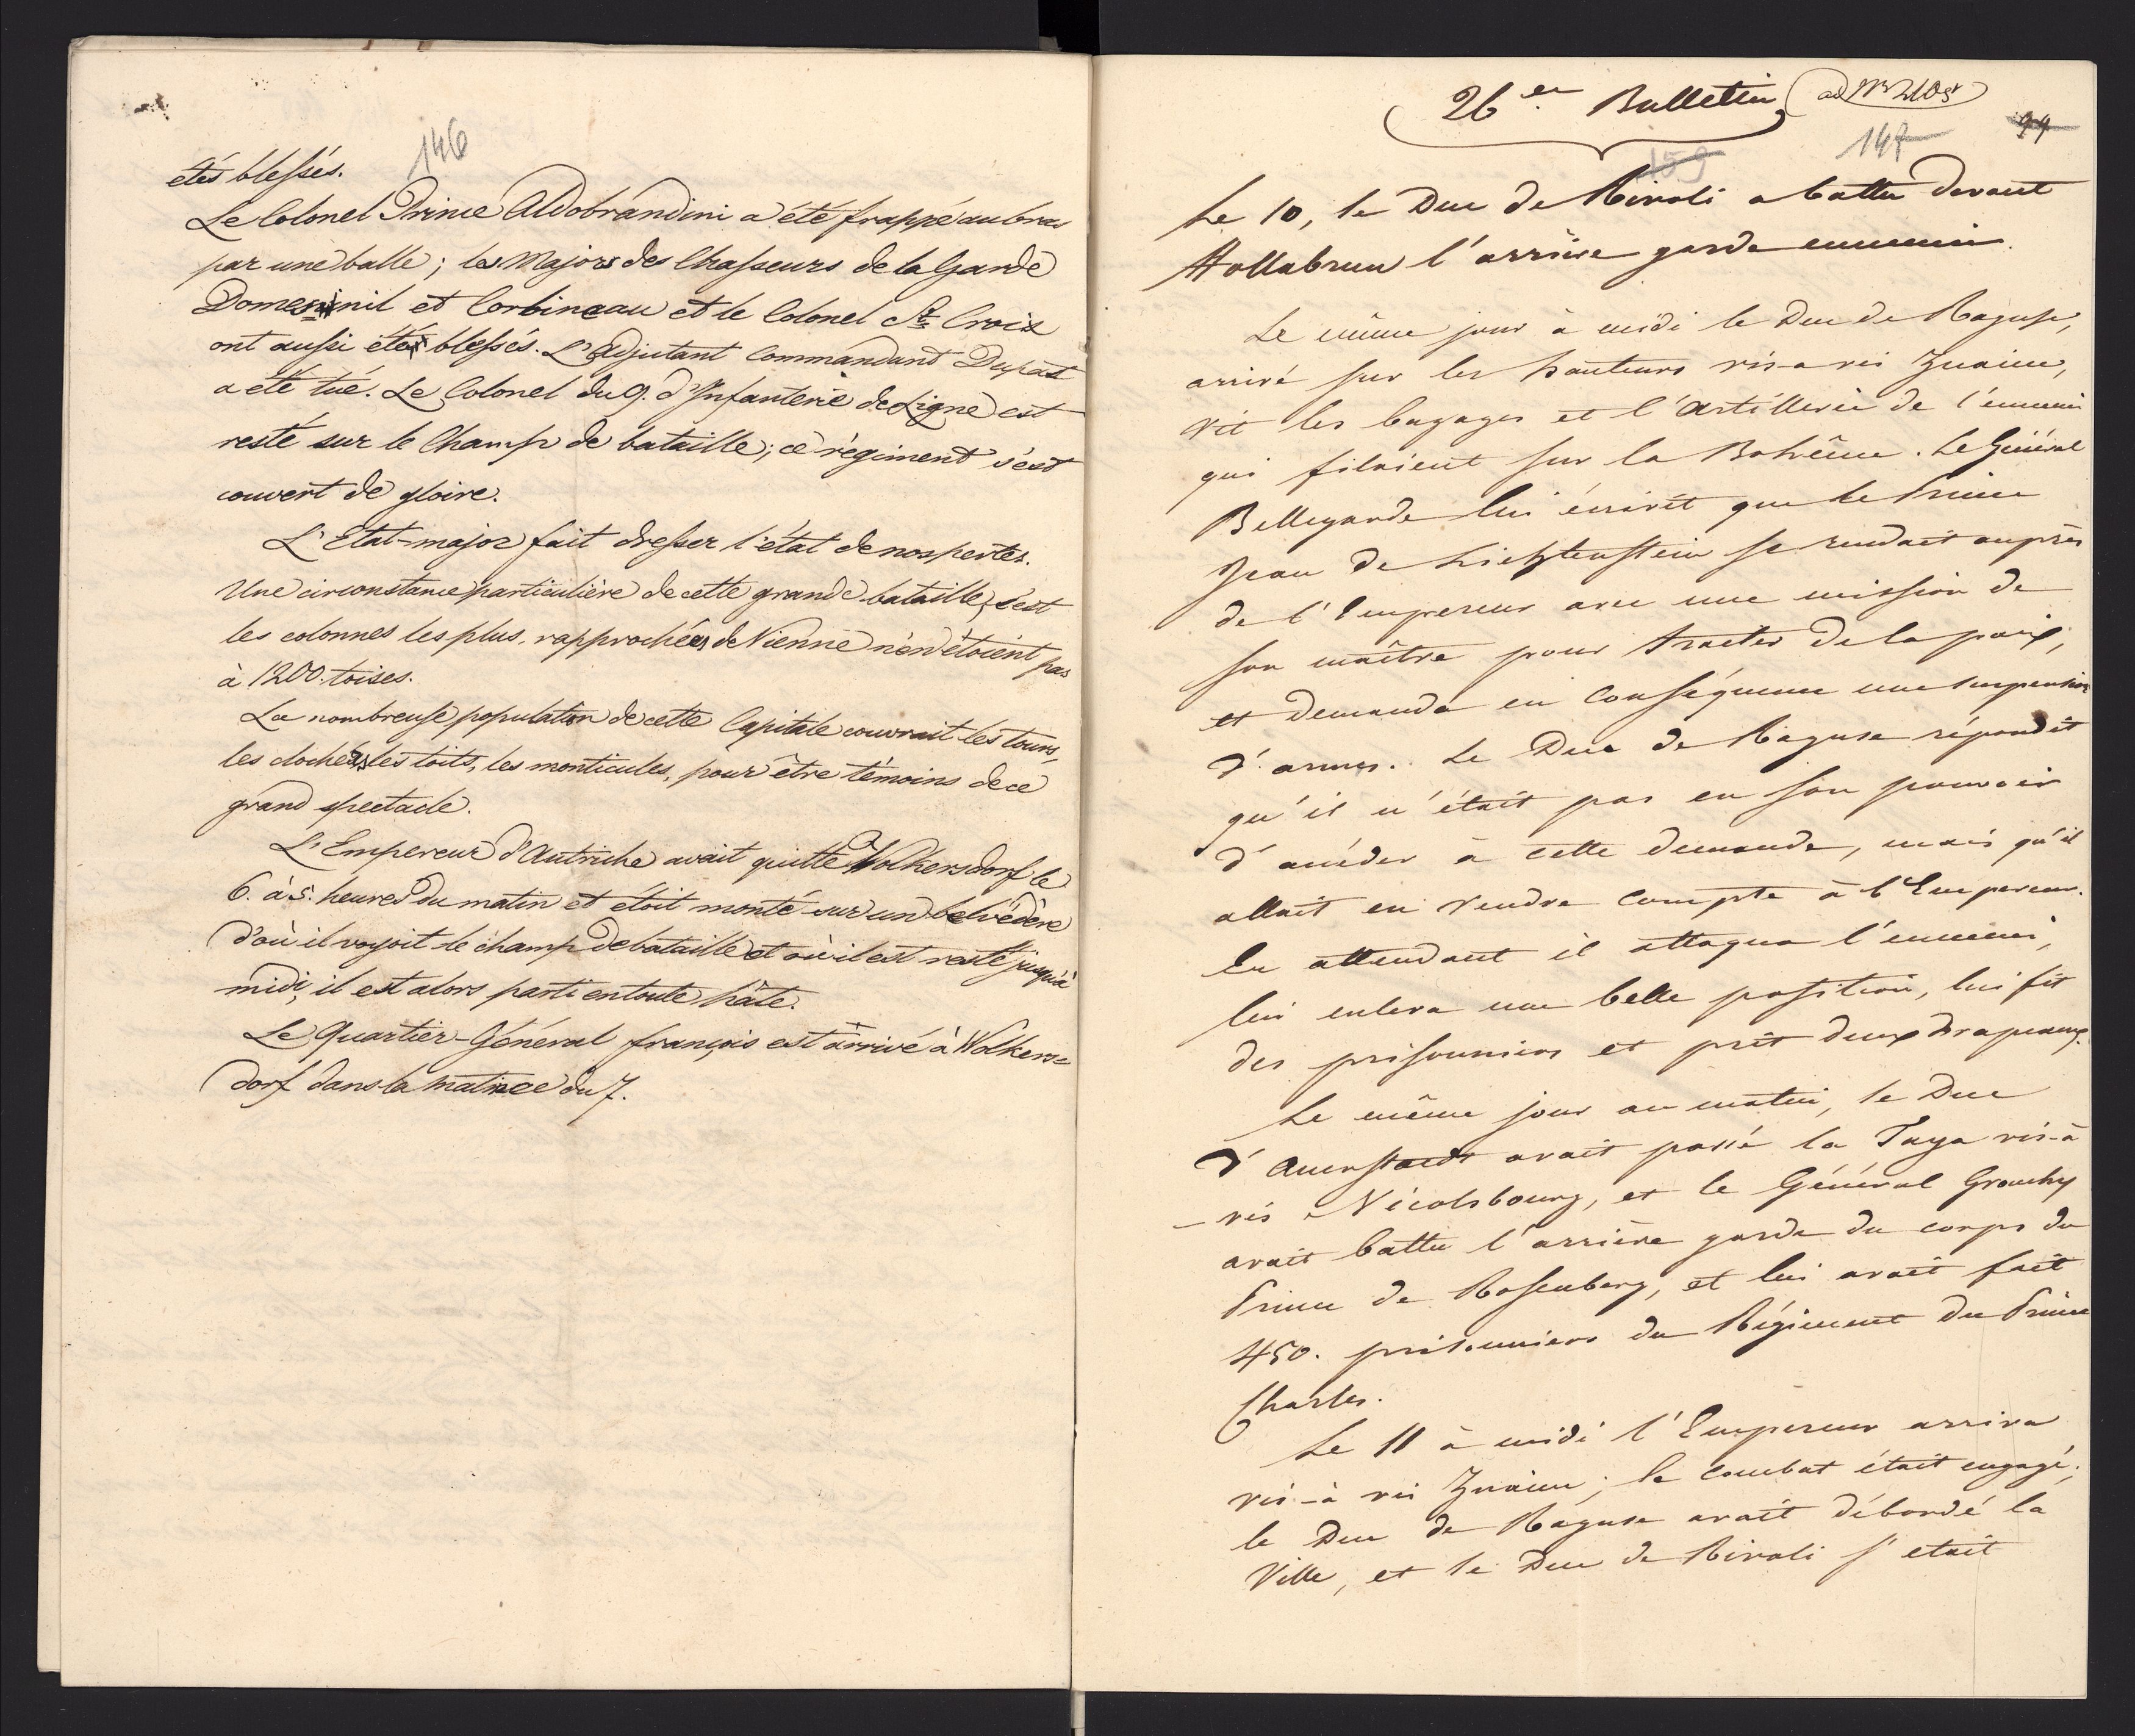 146
etés blessés.
Le Colonel Prince Aldobrandini a été frappé au bras
par une balle; les Majors des Chasseurs de la Garde
Domesnil et Corbineau et le Colonel St. Croix
ont aussi été blessés. L'adjutant Commandant Dupat
a été tué. Le Colonel du 9. d'Infanterie de Ligne est
resté sur le Champ de bataille; ce régiment s'est
couvert de gloire.
L'Etat-major fait dresser l'état de nos pertes.
Une circonstance particulière de cette grande bataille, c'est
les colonnes les plus rapprochées de Vienne n'en étoient pas
à 1200. toises.
La nombreuse population de cette Capitale couvrait les tours,
les clochers, les toits, les monticules, pour être témoins de ce
grand spectacle.
L'Empereur d'Autriche avait quitté Wolkersdorf le
6. à 5. heures du matin et étoit monté sur un belvédère
d'où il voyoit le champ de bataille et où il est resté jusqu'à
midi, il est alors parti en toute hâte.
Le Quartier-Général françois est arrivé à Wolkers=
dorf dans la matinée du 7.
26en Bulletin
ad Nr 2105
99
147
159
Le 10, le Duc de Rivoli a battu devant
Hollabrun l'arrière garde ennemie.
Le même jour à midi le Duc de Raguse,
arrivé sur les hauteurs vis-a vis Znaim,
vit les bagages et l'artillerie de l'ennemi
qui filaient sur la Bohême. Le Général
Bellegarde lui écrivit que le Prince
Jean de Lichtenstein se rendait auprès
de l'Empereur avec une mission de
son maître pour traiter de la paix,
et demanda en conséquence une suspension
d'armes. Le Duc de Raguse répondit
qu'il n'était pas en son pouvoir
d'accéder à cette demande, mais qu'il
allait en rendre compte à l'Empereur.
En attendant il attaqua l'ennemi,
lui enleva une belle position, lui fit
des prisonniers et prit deux drapeaux.
Le même jour au matin, le Duc
d'Auerstaedt avait passé la Taya vis-à
-vis Nicolsbourg, et le Général Grouchy
avait battu l'arrière garde du corps du
Prince de Rosenberg, et lui avait fait
450. prisonniers du Régiment du Prince
Charles.
Le 11 à midi l'Empereur arriva
vis-à vis Znaim; le combat était engagé;
le Duc de Raguse avait débordé la
Ville, et le Duc de Rivoli s'etait